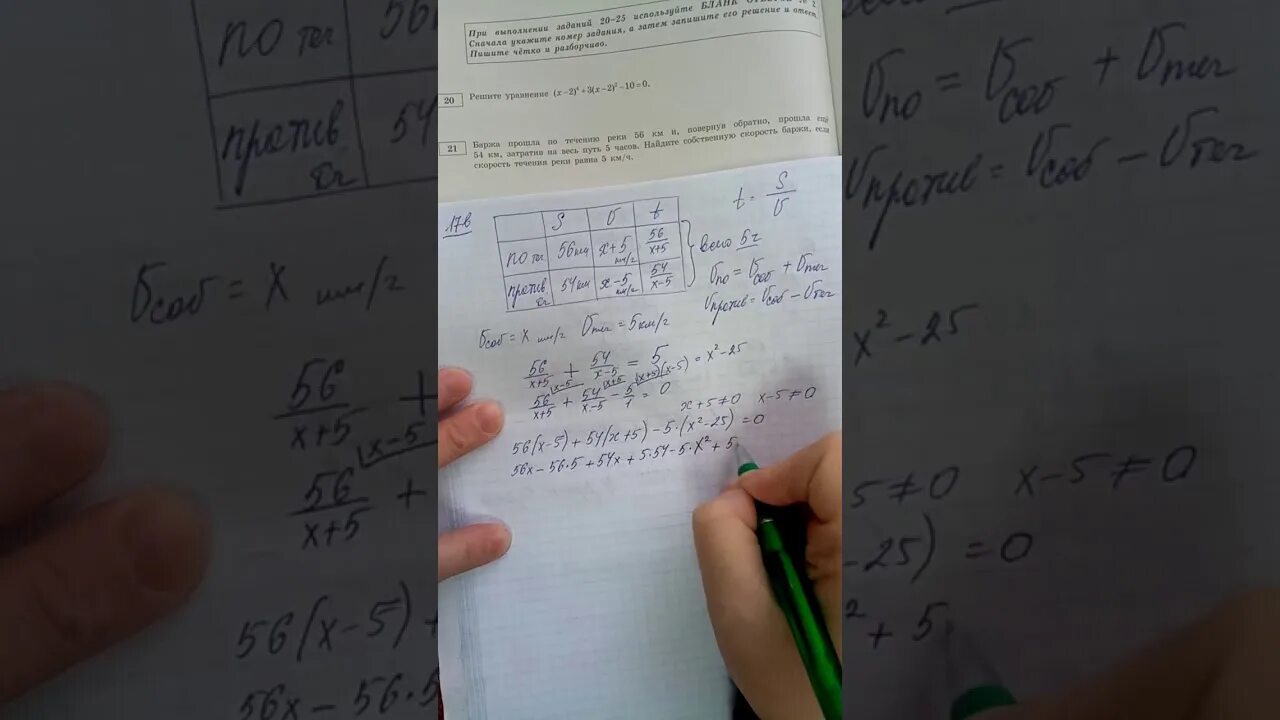 При выполнении заданий 20–25 используйте БЛАНК ОТВЕТОВ № 2.
Сначала укажите номер задания, а затем запишите его решение и ответ.
Пишите чётко и разборчиво.
20 Решите уравнение (x−2)⁴+3(x−2)²−10=0.
21 Баржа прошла по течению реки 56 км и, повернув обратно, прошла ещё
54 км, затратив на весь путь 5 часов. Найдите собственную скорость баржи, если
скорость течения реки равна 5 км/ч.
17в
S υ t
по теч 56км x+5 км/ч 56/(x+5)
против теч 54км x−5 км/ч 54/(x−5)
t = S/υ
всего 5ч
υпо = υсоб + υтеч
υпротив = υсоб − υтеч
υсоб = x км/ч υтеч = 5 км/ч
56/(x+5) + 54/(x−5) = 5
(x+5)(x−5) = x²−25
56/(x+5) + 54/(x−5) − 5/1 = 0
x+5≠0 x−5≠0
56(x−5) + 54(x+5) − 5·(x²−25) = 0
56x − 56·5 + 54x + 5·54 − 5·x² + 5
по теч 56
против теч 54
υсоб = x км/ч
56/(x+5) +
x−5
56/(x+5) +
56(x−5) +
56x − 56·5
υпо = υсоб + υтеч
υпротив = υсоб − υтеч
x²−25
5≠0 x−5≠0
−25) = 0
² + 5